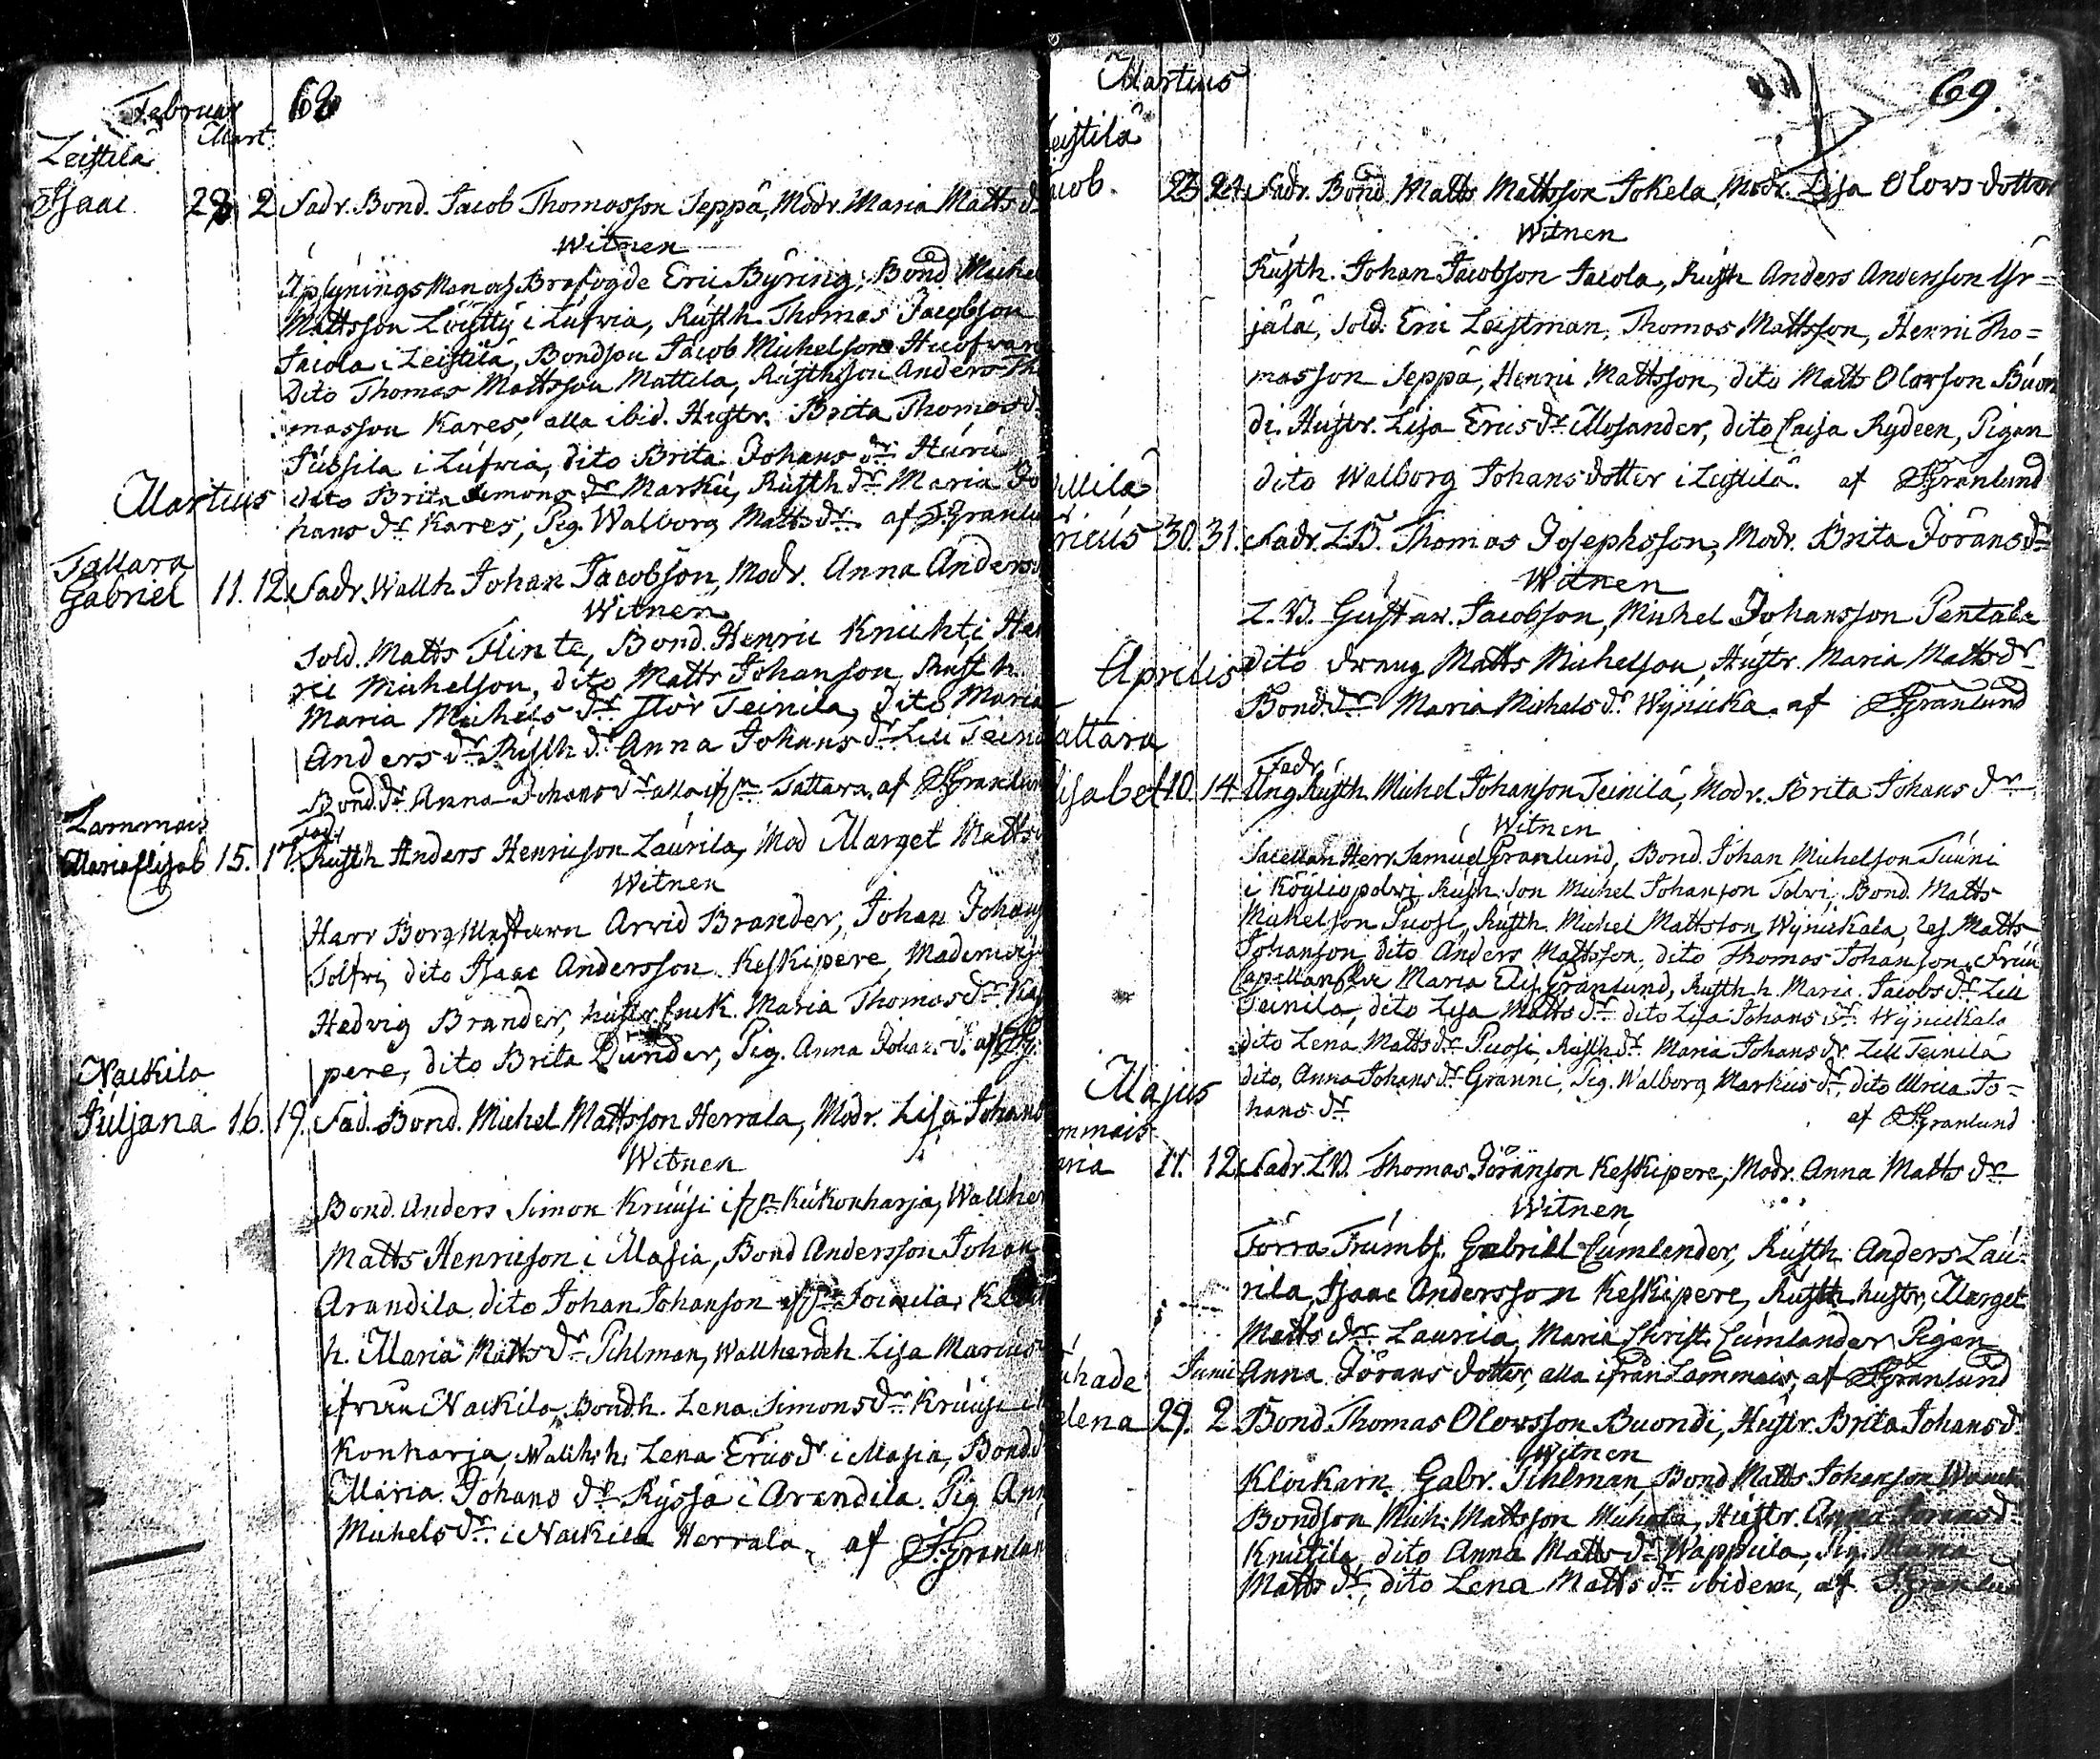 Februar 68
Mart.
Leistila
Isaac 28 2 Fadr. Bond. Jacob Thomasson Seppä, Modr. Maria Matts d
Witnen
UplysningsMan och Brofogde Eric Byring, Bond Michel
Mattsson Löistty i Lufwia, Rusth Thomas Jacobson
Jaiola i Leistila, Bondson Jacob Michelson
Dito Thomas Mattsson Mattila, Rusthsson Anders Th
masson Kares, alla ibid. Hustr. Brita Thomas d
i Lufwia, dito Brita Johans dr Huru
Martius dito Brita Simons dr Marku, Rusth dr Maria Jo
hans dr Kares, Pig. Walborg Matts dr. af S. Granlun
Tattara
Gabriel 11. 12. Fadr. Wallh. Johan Jacobson, Modr. Anna Anders
Witnen
Sold. Matts Flinta, Bond. Henric Knichti, Hen
ric Michelson, dito Matts Johanson, Rusth.
Maria Michels dr Stor Teinila, dito Maria
Anders dr Rusth dr Anna Johans dr Lill Tein
Bond. dr Anna Johans dr alla ifrn Tattara, af S. Granlun
Lammais Fadr
Maria Elisab 15. 17. Rusth Anders Henricson Laurila, Mod Marget Matts
Witnen
Herr Arvid Brander, Johan Johans
Tolfri, dito Isaac Andersson Keskipere, Mademois
Hedvig Brander, hustr. Enk. Maria Thomas dr
pere, dito Brita Dunder, Pig. Anna Johan. d. af S. G.
Nackila
Juljana 16. 19. Fad. Bond. Michel Mattsson Herrala, Modr. Lisa Johans
Witnen
Bond. Anders Simon Kruusi ifrn Kukonharja, Wallher
Matts Henricson i Masia, Bond Andersson Johan
Arandila dito Johan Johanson ifrn
h. Maria Matts dr Pihlman, Wallherdeh. Lisa Marcus
ifrån Nackila, Bondh. Lena Simons dr Kruusi i
Konharja, Wallh. h. Lena Erics dr i Masia, Bond d
Maria Johans dr Ryssä i Arandila. Pig Ann
Michels dr i Nackila Herrala, af S. Granlun
Martius 69.
eistila
acob. 23. 24. Fadr. Bond Matts Mattsson Jokela, Modr. Lisa Olovs dotter
Witnen
Rusth. Johan Jacobson Jaiola, Rusth Anders Anderson Yr=
jälä, Sold. Eric Leistman, Thomas Mattsson, Henric Tho=
masson Seppä, Henric Mattsson, dito Matts Olovson Buon
di. Hustr. Lisa Erics dr Mosander, dito Caisa Rydeen, Pigan
dito Walborg Johansdotter i Leistila. af S. Granlund
illilä
ricus 30. 31. Fadr. L.B. Thomas Josephsson, Modr. Brita Jörans dr
Witnen
L.B. Gustav. Jacobson, Michel Johansson Pentala
Aprilis dito dräng Matts Michelson, Hustr. Maria Matts dr
Bond. dr Maria Michels dr Wynicka. af S. Granlund
attara Fadr
lisabet 10. 14. Ung Rusth. Michel Johanson Teinilä, Modr. Brita Johans dr
Witnen
Sacellan Herr Samuel Granlund, Bond. Johan Michelson Tuuni
i Köyliöpolwi, Rusth. son Michel Johanson Tolwi, Bond. Matts
Michelson Puosi, Rusth. Michel Mattsson Wynickala, Matts
Johanson, dito Anders Mattsson, dito Thomas Johanson. Fruu
Capellanskan Maria Elis. Granlund, Rusth h. Maria Jacobs dr Lill
Teinila, dito Lisa Matts dr dito Lisa Johans dr Wynickala
dito Lena Matts dr Puosi, Rusth dr. Maria Johans dr Lill Teinilä
Majus dito, Anna Johans dr Granni, Pig. Walborg Marcus dr, dito Ulrica Jo=
hans dr af S. Granlund
mmais
aria 11. 12. Fadr. L.B. Thomas Göranson Keskipere, Modr. Anna Matts dr
Witnen
Förra Trumbs. Gabriel Cumlander, Rusth Anders Lau-
rila, Isaac Andersson Keskipere, Rusth hustr, Marget
Matts dr Laurila, Maria Christ. Cumlander, Pigan
uhade Junii Anna Jörans dotter, alla ifrån Lammais, af S. Granlund
elena 29. 2 Bond. Thomas Olovsson Buondi, Hustr. Brita Johans d
Witnen
Klockarn. Gabr. Pihlman, Bond Matts Johanson
Bondson Mich: Mattsson Michola, Hustr. Anna Jörans d
Knutila, dito Anna Matts dr Wappula, Pig. Maria
Matts dr, dito Lena Matts dr ibidem, af S. Granlun